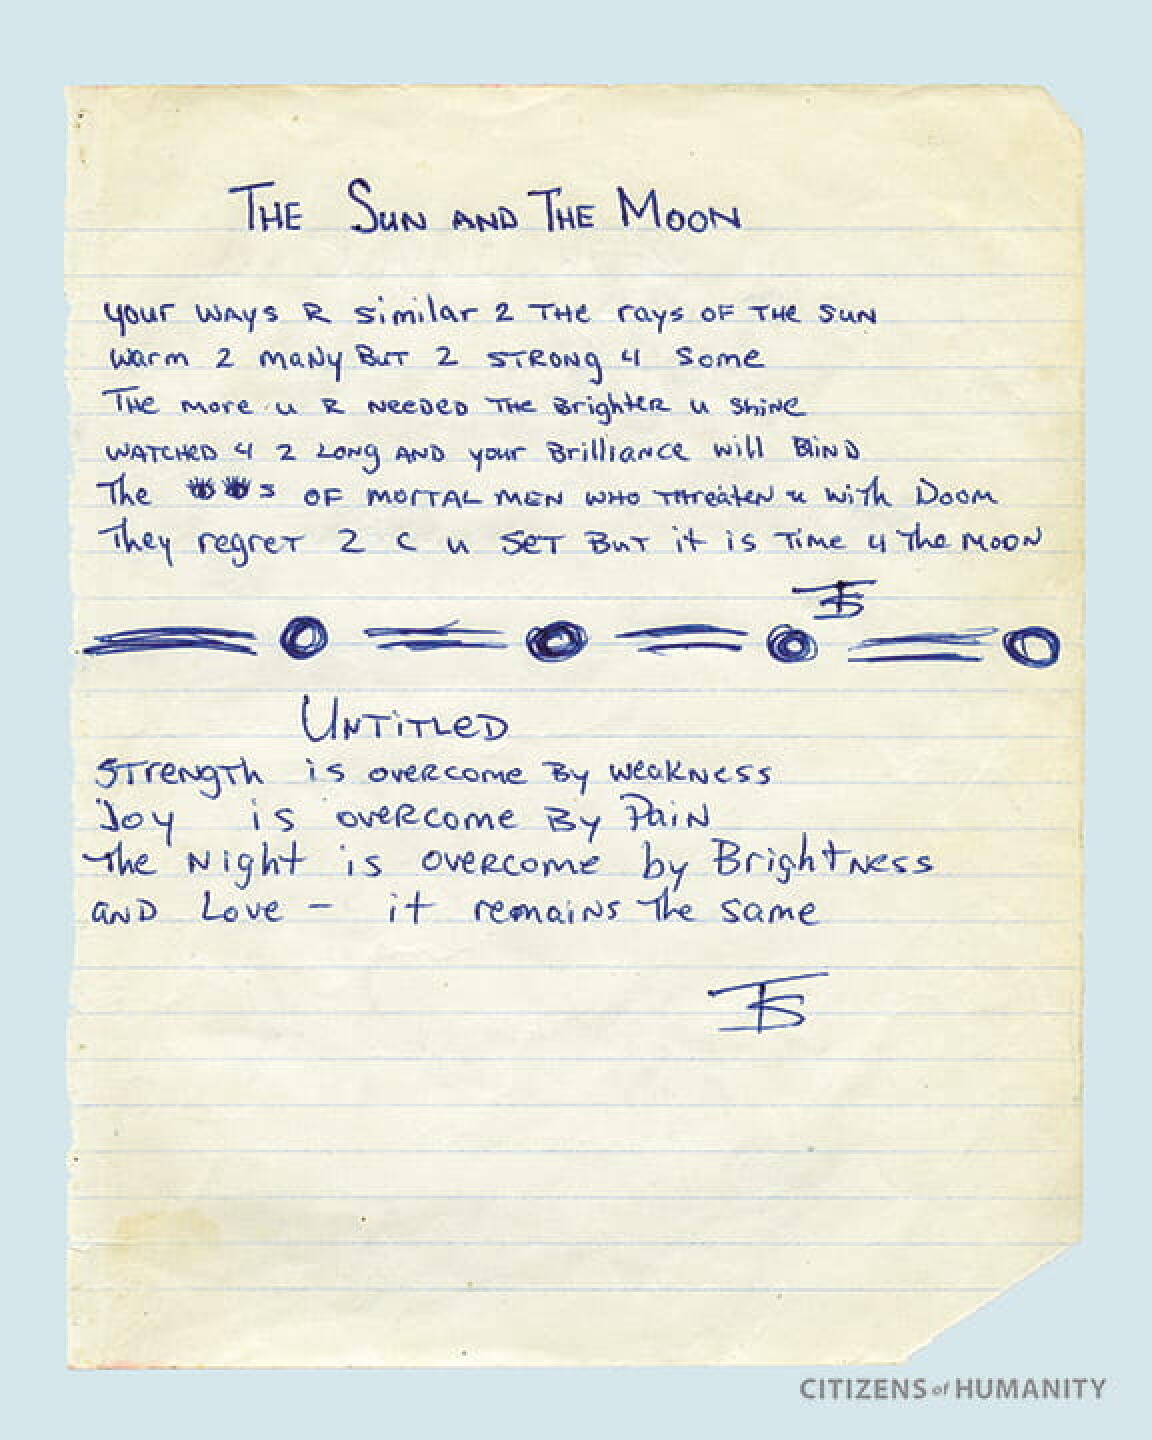 THE SUN AND THE MOON
your WAYS R similar 2 THE rays OF THE SUN
Warm 2 many BUT 2 STRONG 4 Some
THE more u R NEEDED THE BrighteR u shiNe
WATCHED 4 2 LONG AND your Brilliance will BlinD
The 👁👁s OF MORTAL MEN WHO THreaten u with Doom
They regret 2 C u SET BuT it is Time 4 The MOON
TS
UNTiTLeD
STrength is oveRcome By weakNess
Joy is oveRcome By PaiN
The Night is oveRcome by BrightNess
AND Love - it remaiNs The same
TS
CITIZENS of HUMANITY